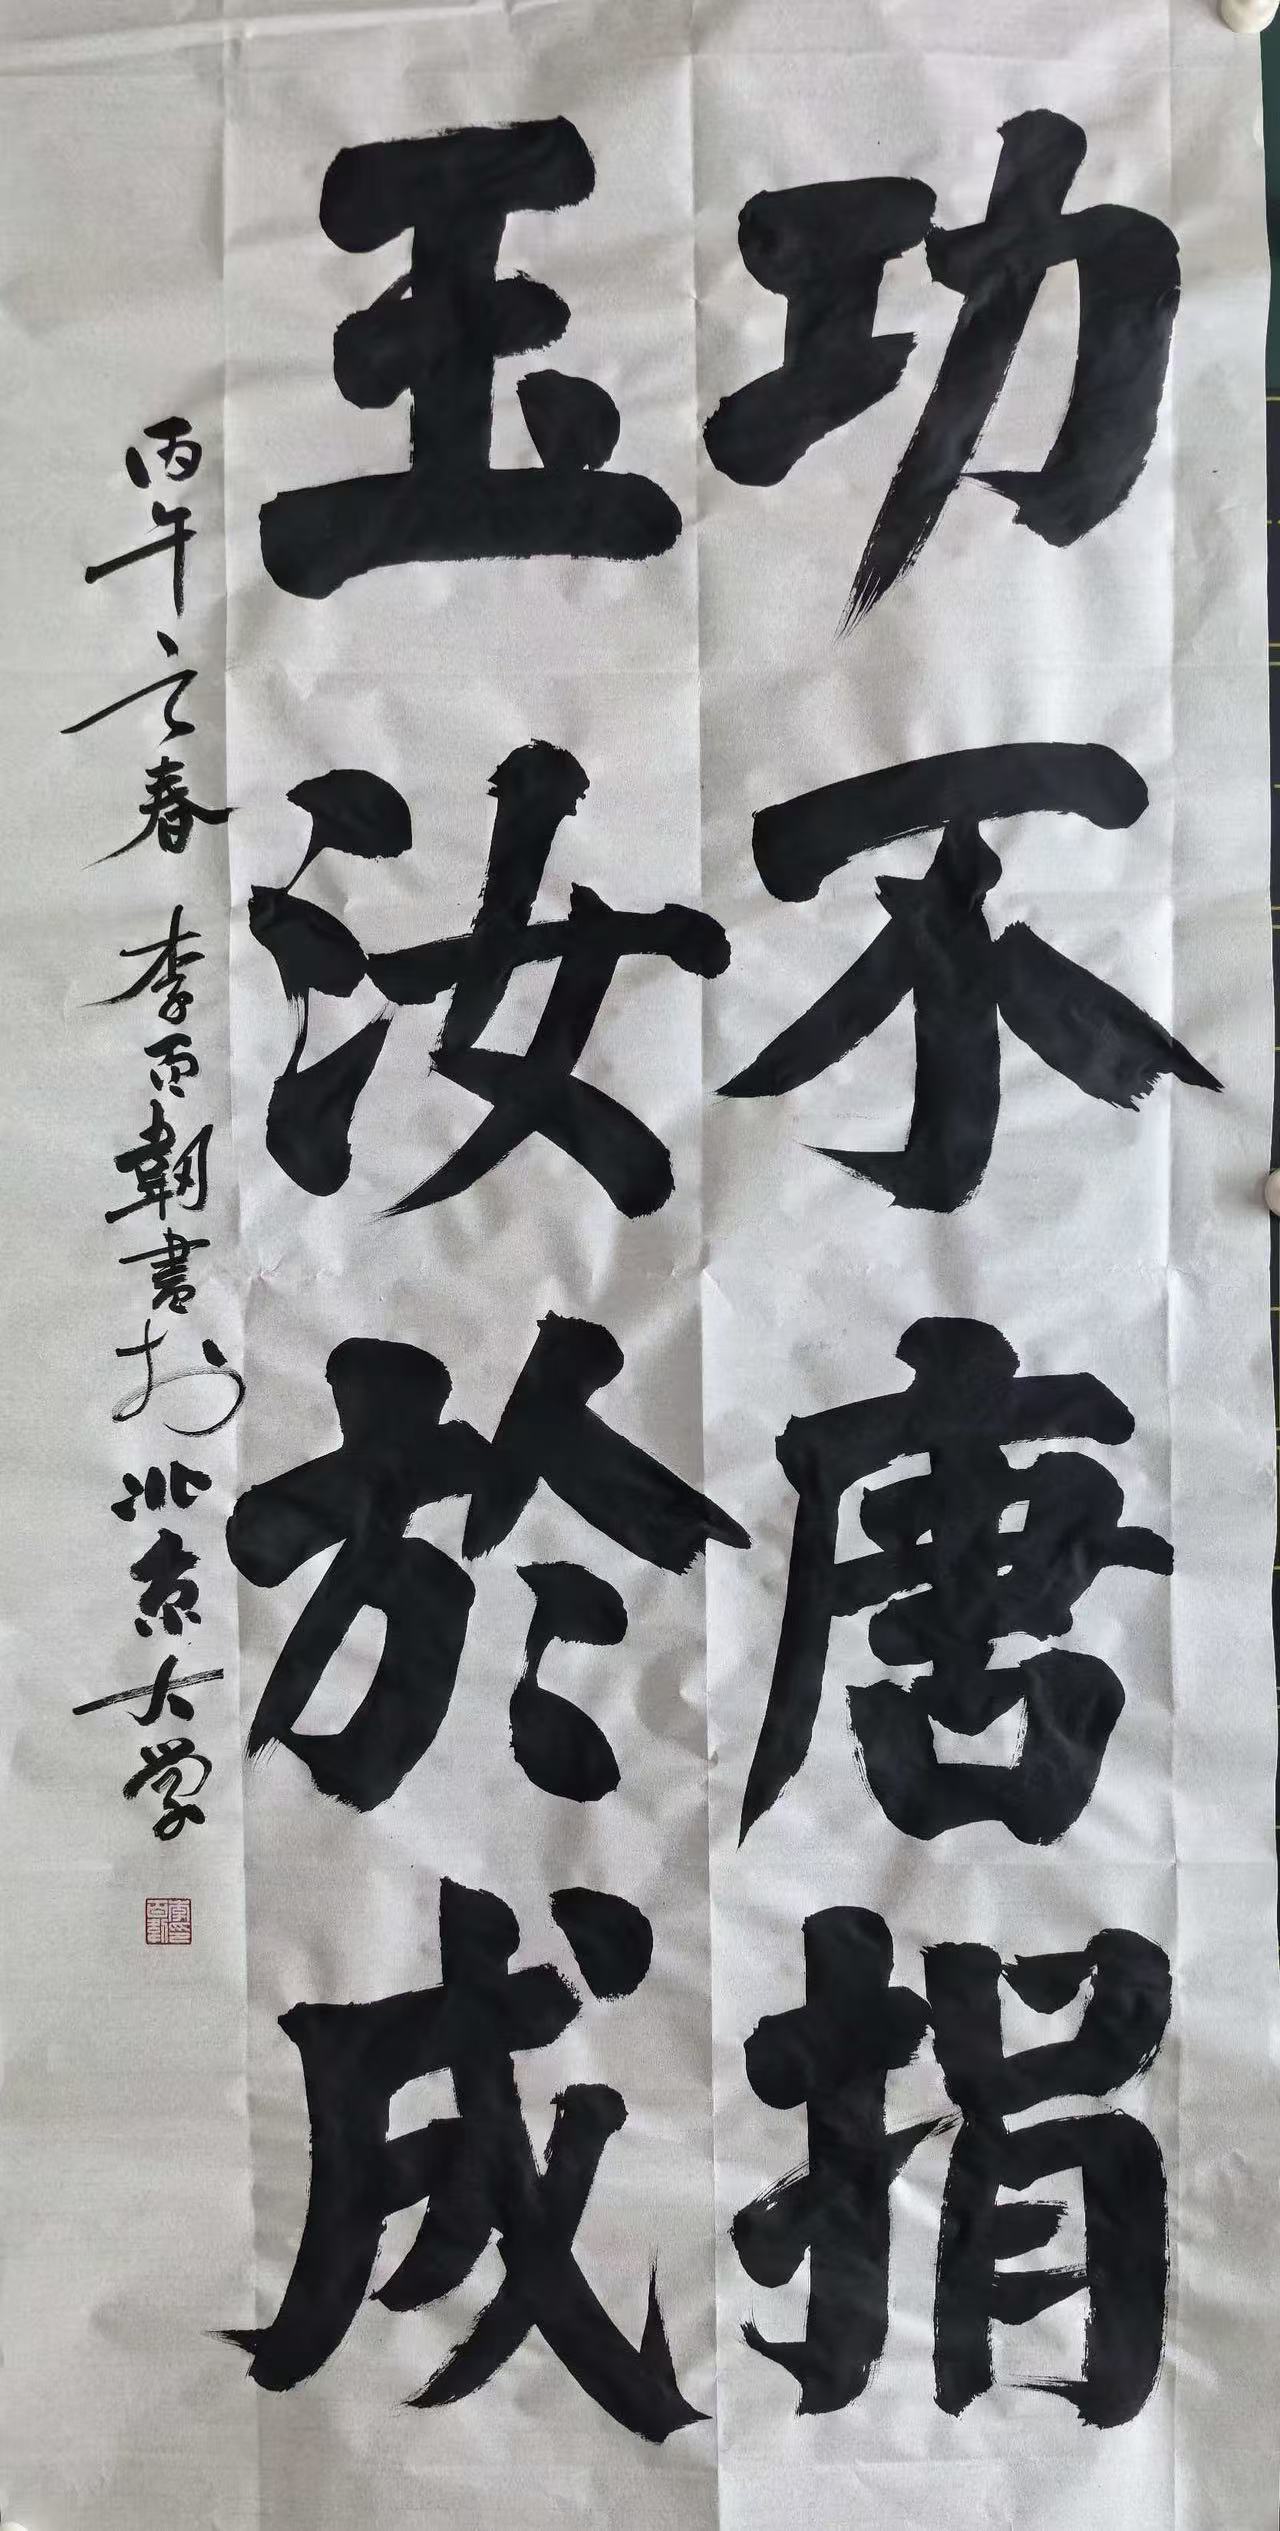 功不唐捐
玉汝於成
丙午立春 李百韌書於北京大学